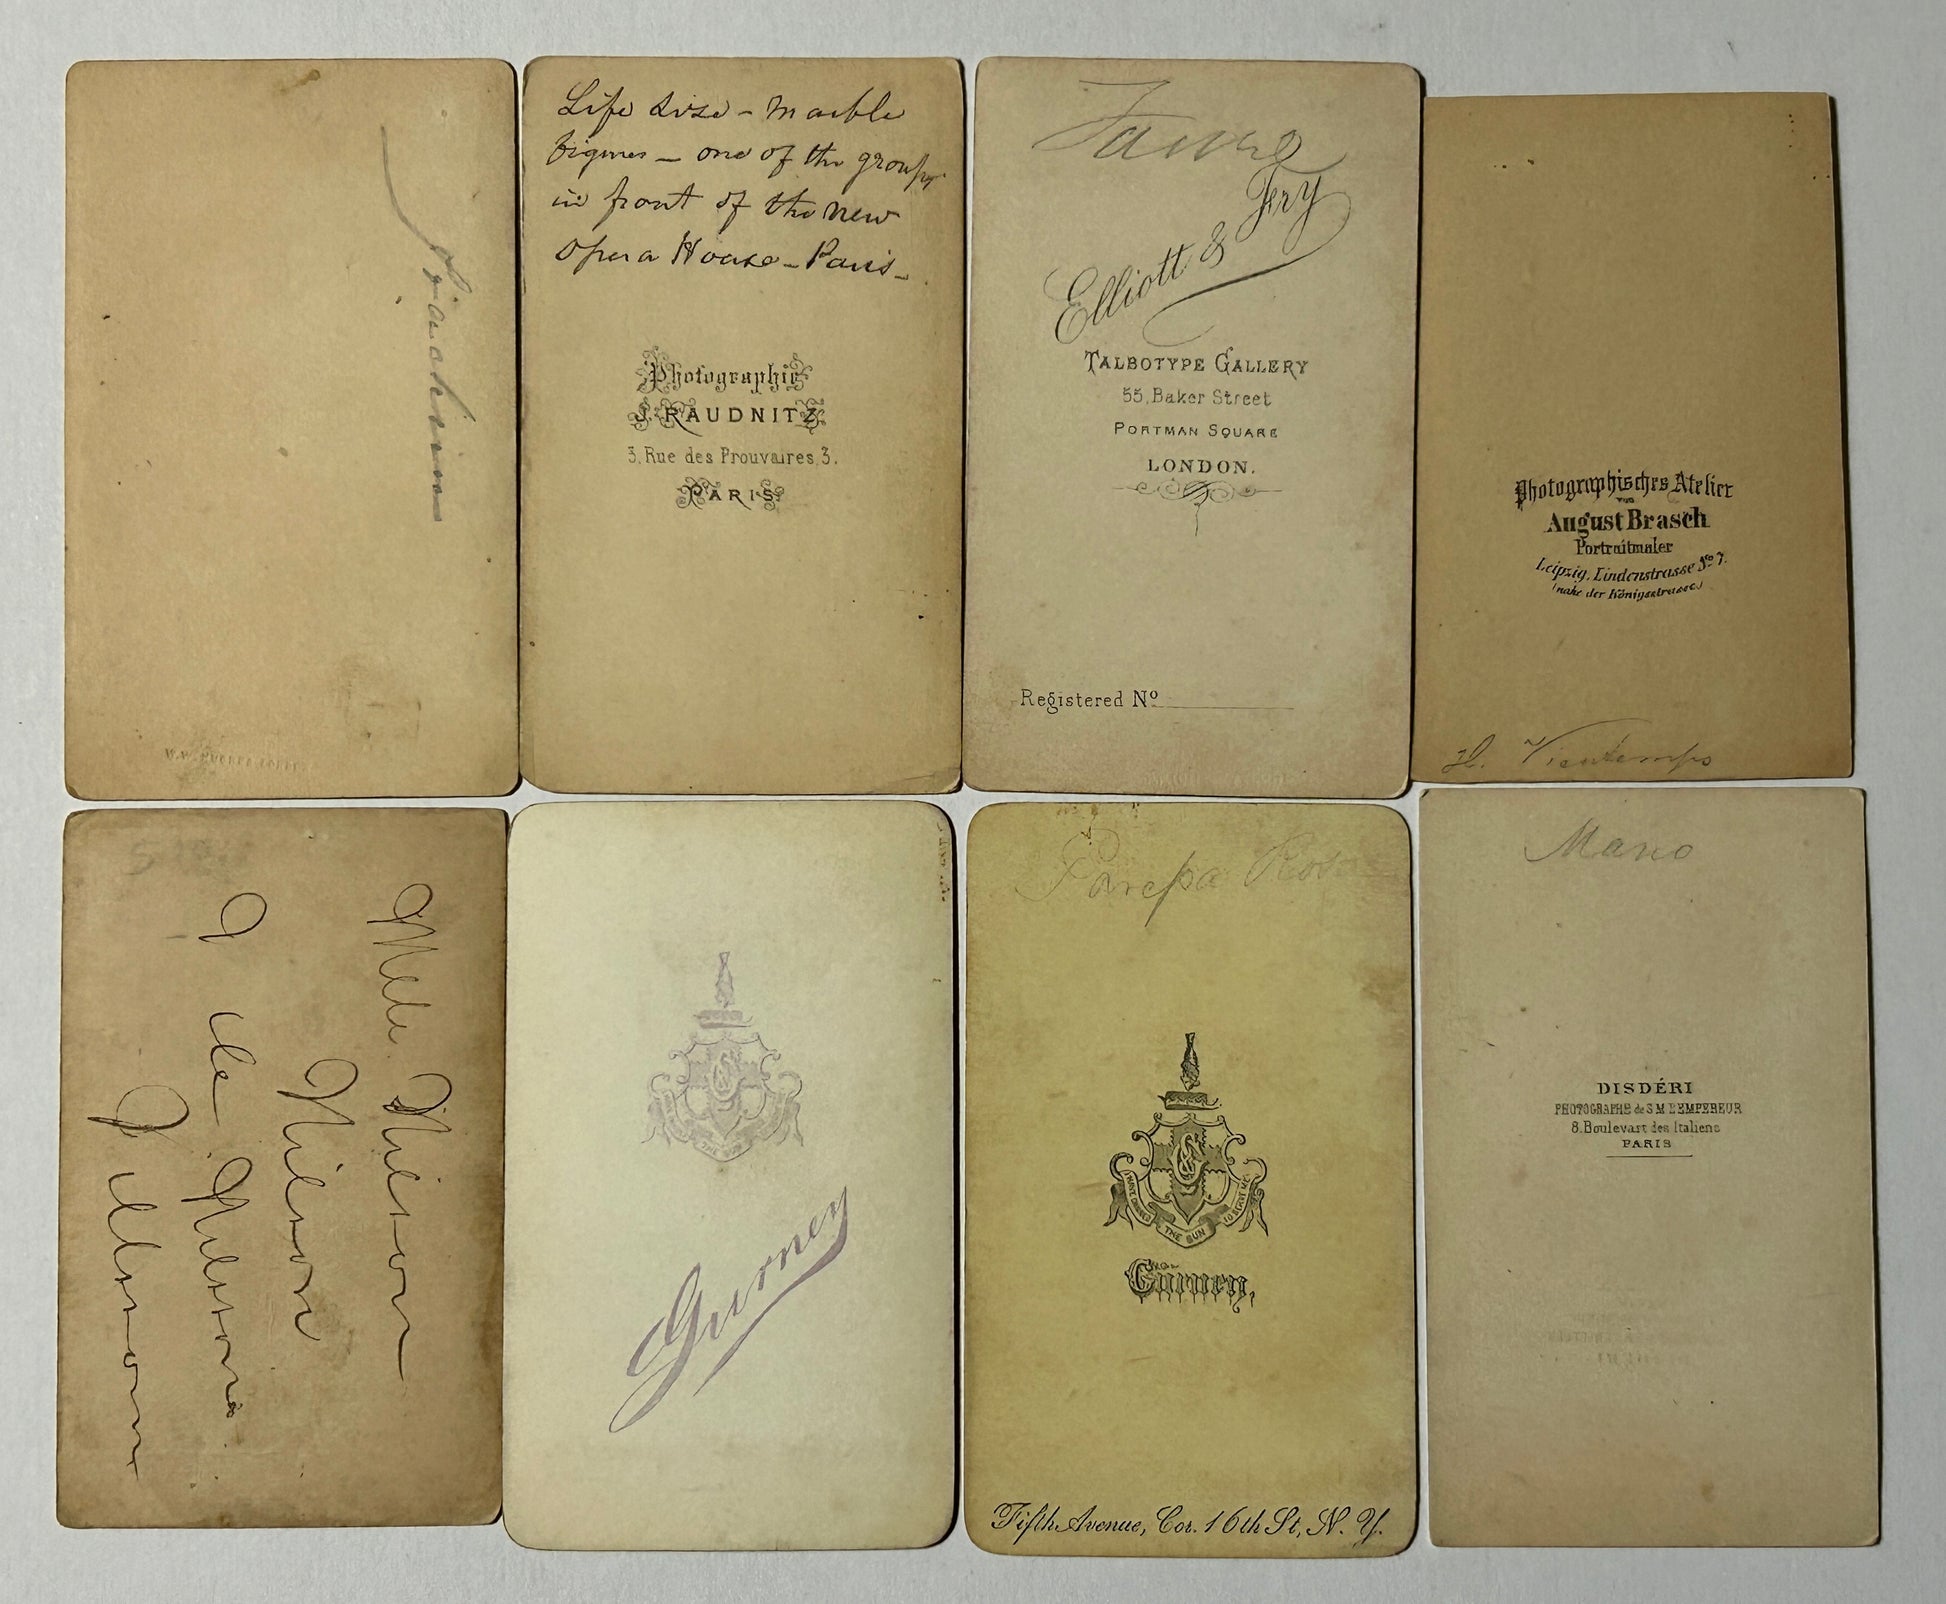 Joachim
Life size - Marble
figures - one of the groups
in front of the new
Opera House - Paris -
Photographie
J. RAUDNITZ
3, Rue des Prouvaires, 3.
PARIS
Elliott & Fry
TALBOTYPE GALLERY
55, Baker Street
PORTMAN SQUARE
LONDON.
Registered No
Photographisches Atelier
von
August Brasch
Portraitmaler
Leipzig, Lindenstrasse No 7.
(nahe der Königsstrasse)
H. Vieutemps
Mlle Nilson
Nilson
Nilson
Gurney
THE SUN
Parepa Rosa
THE SUN
Gurney,
Fifth Avenue, Cor. 16th St, N. Y.
Mario
DISDÉRI
PHOTOGRAPHE de S M L'EMPEREUR
8. Boulevart des Italiens
PARIS